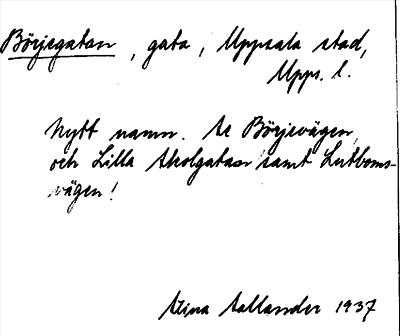 Börjegatan, gata, Uppsala stad,
Upps. l.
Nytt namn. Se Börjevägen,
och Lilla Skolgatan samt Lutboms-
vägen!
Stina Sallander 1937